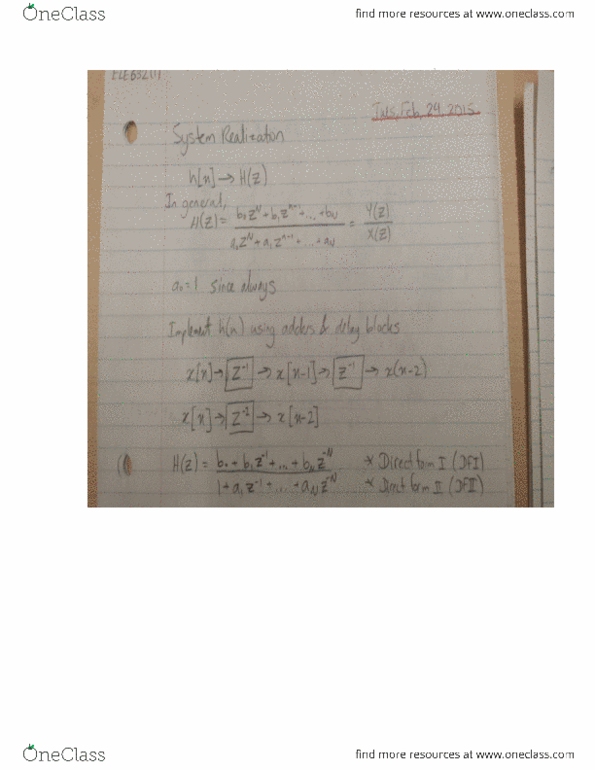 OneClass
find more resources at www.oneclass.com
ELE632(1)
Tues, Feb, 24, 2015
System Realization
h[n] → H(z)
In general,
H(z) = b₀z^N + b₁z^(n-1) + ... + b_N / a₀z^N + a₁z^(n-1) + ... + a_N = Y(z) / X(z)
a₀ = 1 since always
Implement h(n) using adders & delay blocks
x[n] → z^-1 → x[n-1] → z^-1 → x(n-2)
x[n] → z^-2 → x[n-2]
H(z) = b₀ + b₁z^-1 + ... + b_N z^-N / 1 + a₁z^-1 + ... + a_N z^-N * Direct form I (DFI)
* Direct form II (DFII)
OneClass
find more resources at www.oneclass.com